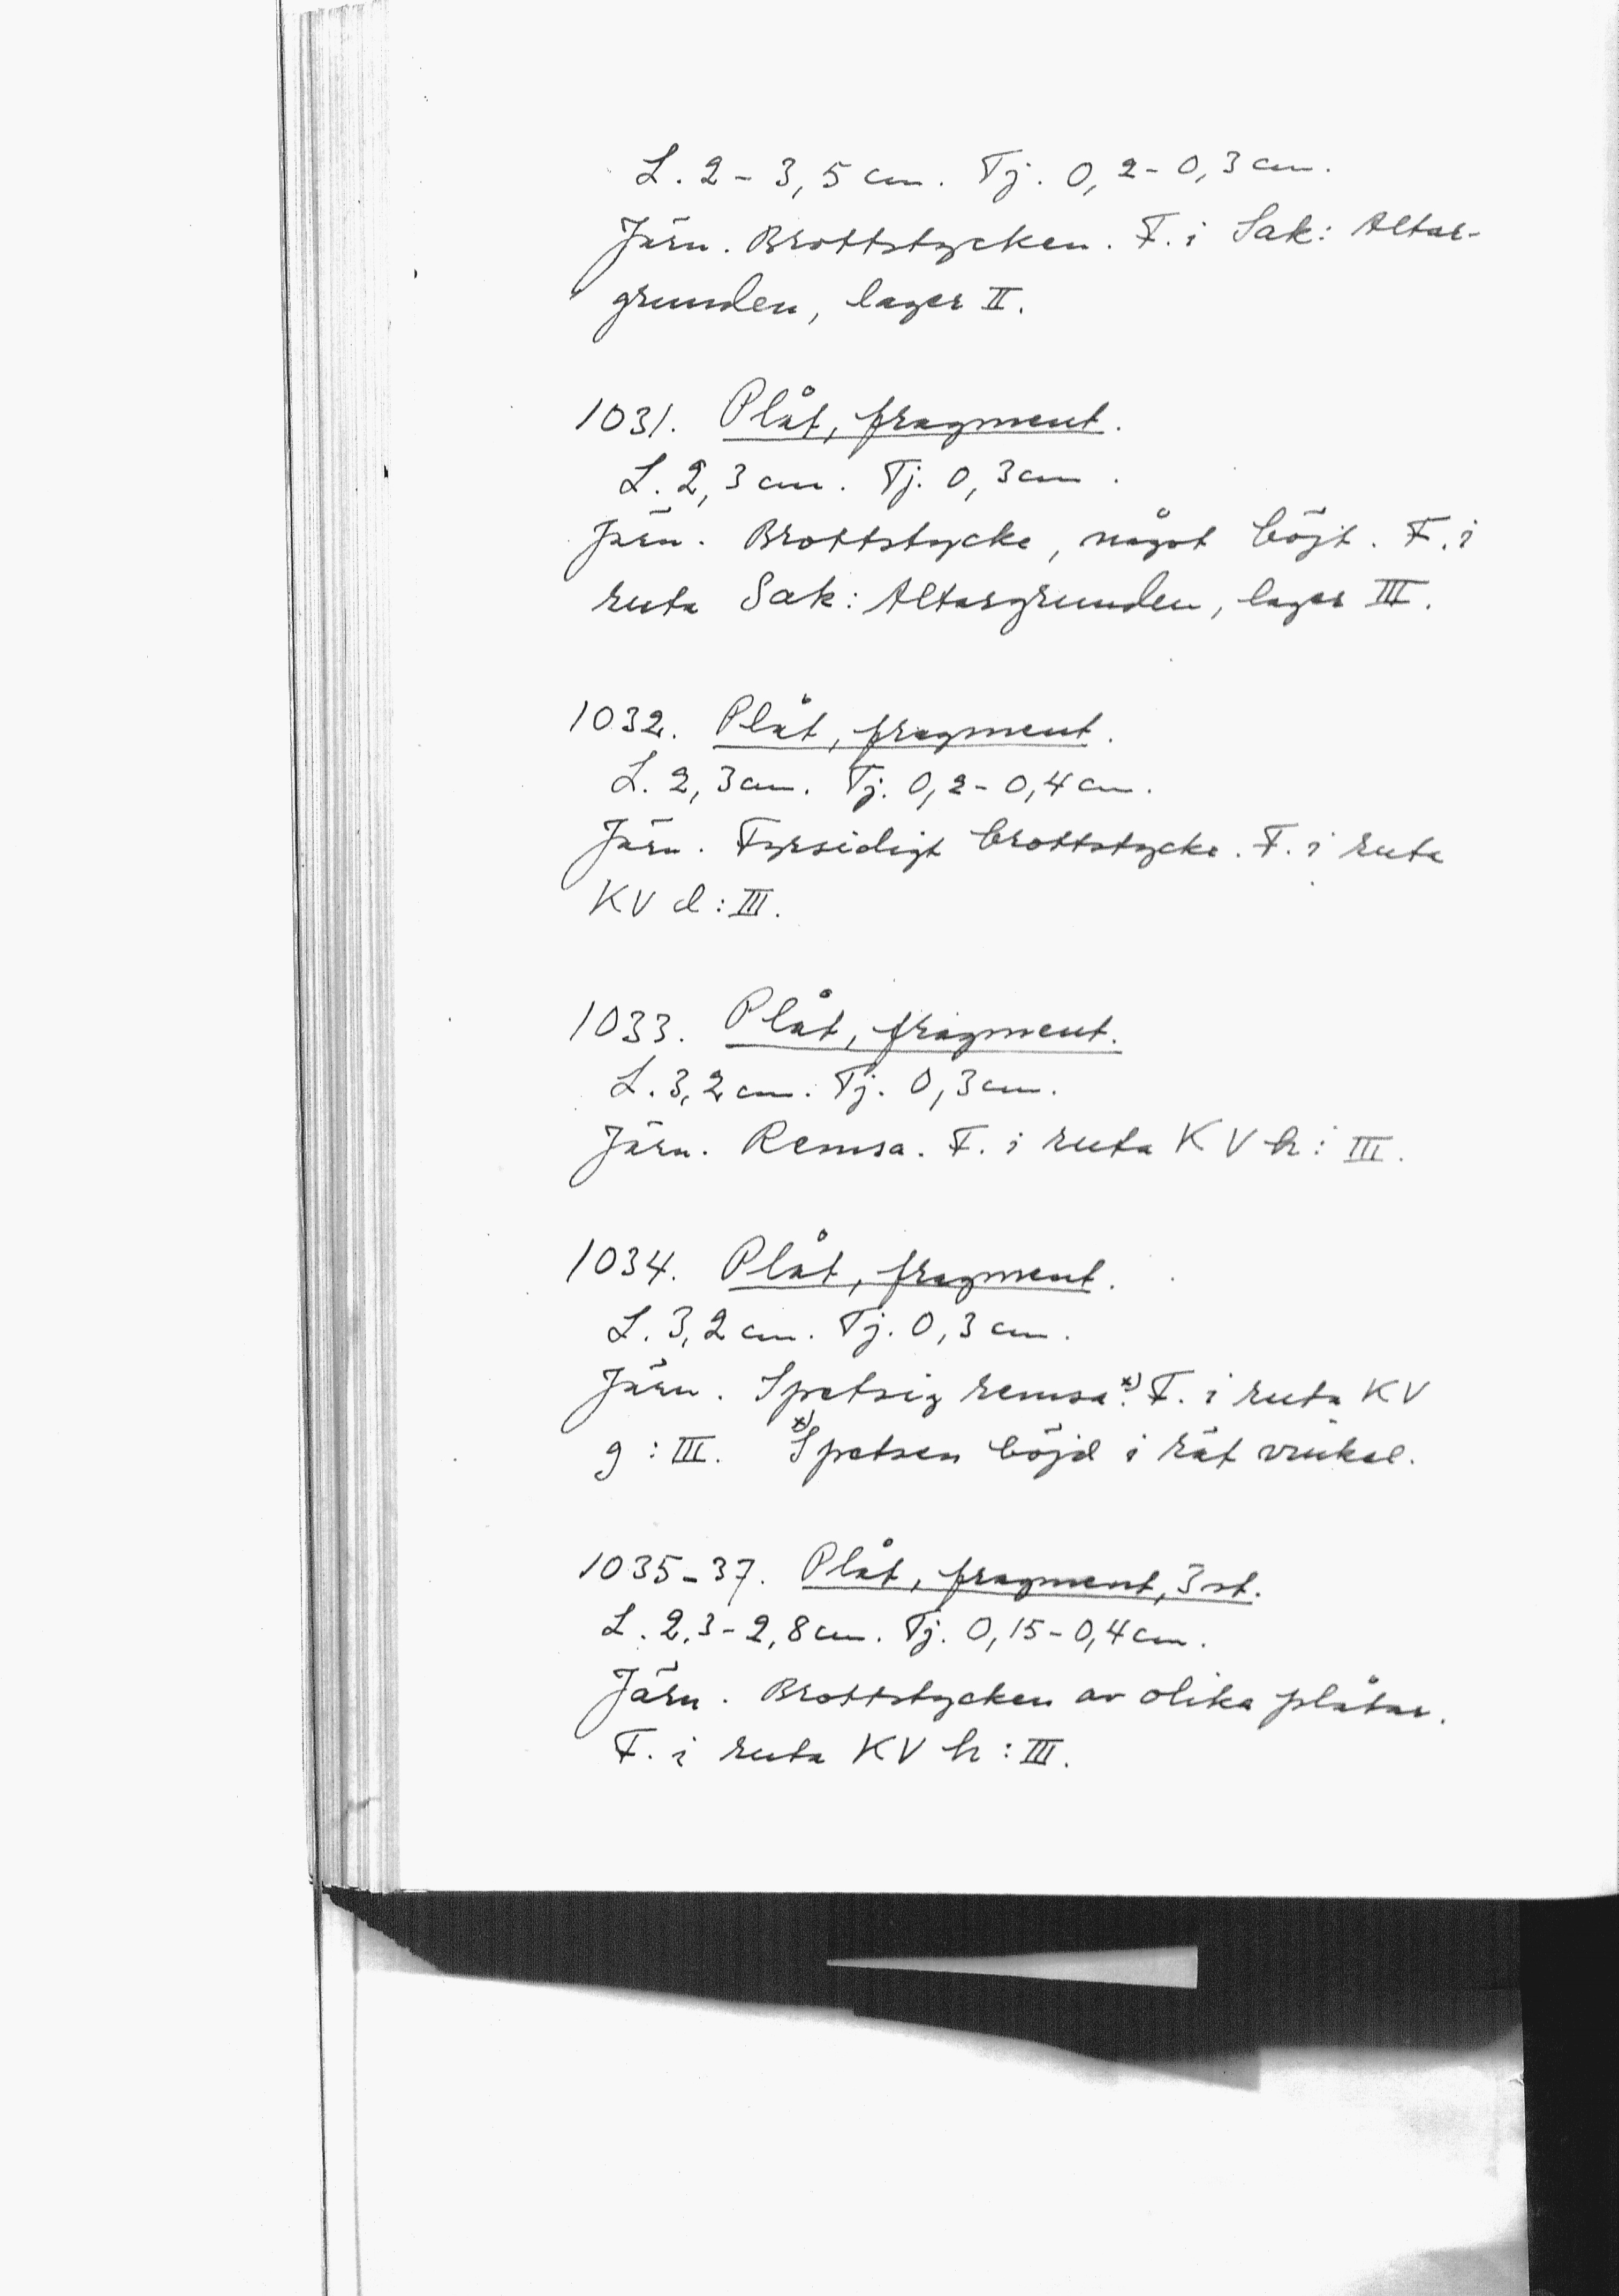 L. 2 - 3,5 cm. Tj. 0,2 - 0,3 cm.
Järn. Brottstycken. F. i Sak: Altar-
grunden, lager II.
1031. Plåt, fragment.
L. 2,3 cm. Tj. 0,3 cm.
Järn. Brottstycke, något böjt. F. i
ruta Sak: Altargrunden, lager III.
1032. Plåt, fragment.
L. 2,3 cm. Tj. 0,2 - 0,4 cm.
Järn. Fyrsidigt brottstycke. F. i ruta
KV d : III.
1033. Plåt, fragment.
L. 3,2 cm. Tj. 0,3 cm.
Järn. Remsa. F. i ruta KV h : III.
1034. Plåt, fragment.
L. 3,2 cm. Tj. 0,3 cm.
Järn. Spetsig remsa.x) F. i ruta KV
g : III. x) Spetsen böjd i rät vinkel.
1035-37. Plåt, fragment, 3 st.
L. 2,3 - 2,8 cm. Tj. 0,15 - 0,4 cm.
Järn. Brottstycken av olika plåtar.
F. i ruta KV h : III.